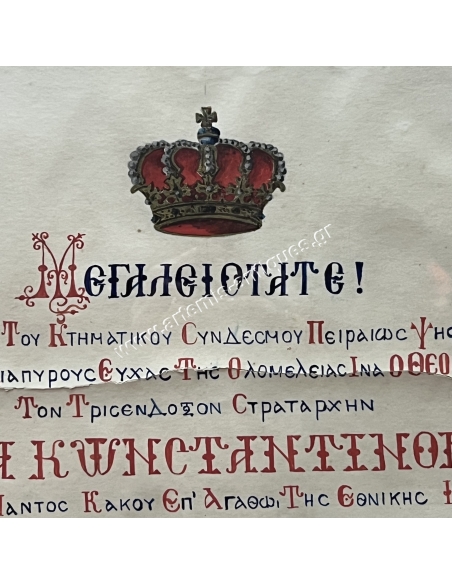 Μεγαλειοτατε!
Του Κτηματικου Συνδεσμου Πειραιως Ψη
ιαπυρους Ευχας Της Ολομελειας Ινα Ο Θεο
Τον Τρισενδοξον Στραταρχην
Α ΚΩΝΣΤΑΝΤΙΝΟΝ
Παντος Κακου Επ' Αγαθωι Της Εθνικης
www.artemis-antiques.gr